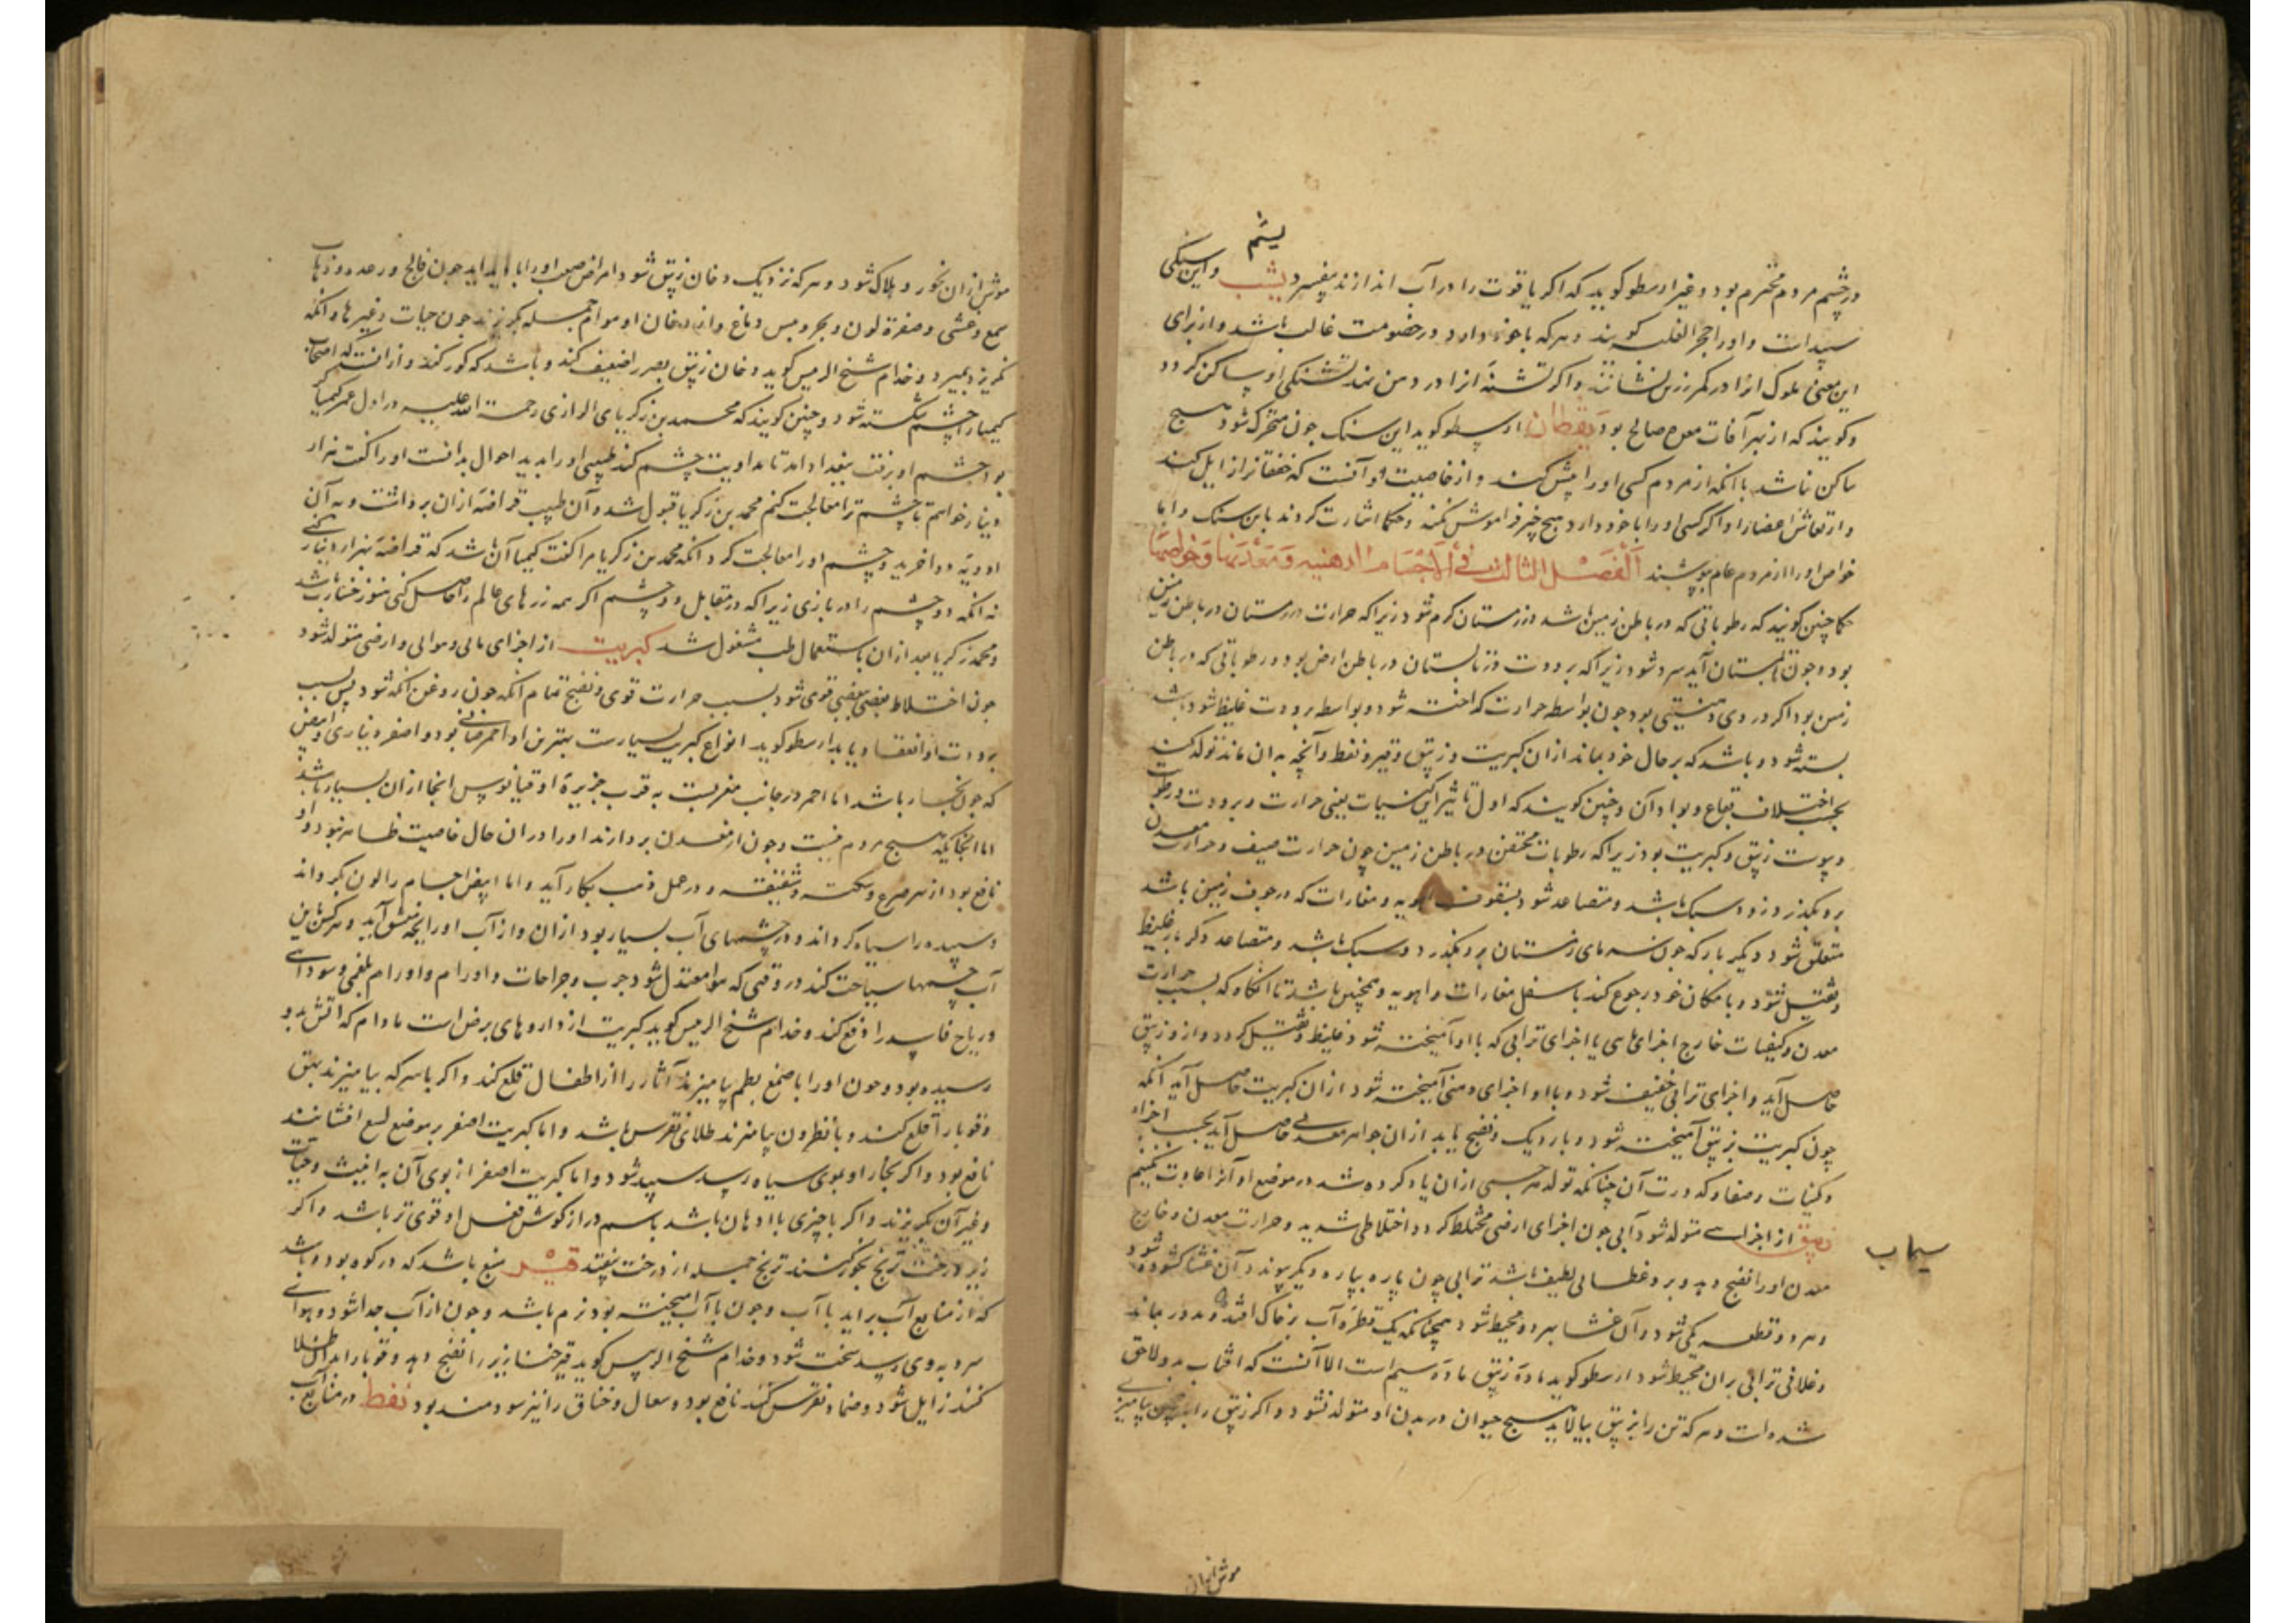 یشم
در چشم مردم محترم بود و غیر ارسطو کوید که اکر یاقوت را در آب اندازند بیفسرد یشب و این سنکی
سپید است و او را حجر الغلبه کویند و هرکه با خود دارد در خصومت غالب باشد و از برای
این معنی ملوک آنرا در کمر زرین نشانند و اکر تشنه آنرا در دهن نهد تشنکی او ساکن کردد
و کویند که از بهر آفات معده صالح بود یقطان ارسطو کوید این سنک چون متحرک شود هیچ
ساکن نباشد تا آنکه از مردم کسی او را مس کند و از خاصیت او آنست که خفقان را زایل کند
و ارتعاش اعضا را و اکر کسی او را با خود دارد هیچ چیز فراموش نکند و حکما اشارت کردند باین سنک و اما
خواص او را از مردم عام بپوشیند الفصل الثالث فی الاجسام الدهنیه و معدنها و خواصها
حکما چنین کویند که رطوباتی که در باطن زمین باشد در زمستان کرم شود زیرا که حرارت در زمستان در باطن زمین
بود و چون تابستان آید سرد شود زیرا که برودت در تابستان در باطن ارض بود و رطوباتی که در باطن
زمین بود اکر در وی دهنیتی بود چون بواسطه حرارت کداخته شود و بواسطه برودت غلیظ شود باشد
بسته شود و باشد که بر حال خود بماند از ان کبریت و زیبق و قیر و نفط و آنچه به ان ماند تولد کند
بحسب اختلاف بقاع و بوادآن و چنین کویند که اول تاثیر این کیفیات یعنی حرارت و برودت و رطوبت
و یبوست زیبق و کبریت بود زیرا که رطوبات محتقن در باطن زمین چون حرارت صیف و حرارت معدن
برو بکذرد زود سبک باشد و متصاعد شود بسقوف اهویه و مغارات که در جوف زمین باشد
متعلق شود دیکر بار که چون سرمای زمستان برو بکذرد و سبک باشد و متصاعد دکر بار غلیظ
و ثقیل شود و با مکان خود رجوع کند باسفل مغارات و اهویه و همچنین باشد تا آنکاه که بسبب حرارت
معدن و کیفیات خارج اجزای مایی یا اجزای ترابی که با او آمیخته شود غلیظ و ثقیل کردد و از و زیبق
حاصل آید و اجزای ترابی خفیف شود و با او اجزای دهنی آمیخته شود از ان کبریت حاصل آید آنکه
چون کبریت بزیبق آمیخته شود و بار دیک و نضج یابد از ان جواهر معدنی حاصل آید بحسب اجزاء
و کیفیات و صفا و کدورت آن چنانکه تولد هر جسمی از ان یاد کرده شد در موضع او آنرا اعادت نکنیم
زیبق از اجزای متولد شود آبی چون اجزای ارضی مختلط کردد اختلاطی شدید و حرارت معدن و خارج
سیماب
معدن او را نضج دهد و برو غطایی لطیف باشد ترابی چون پاره بپاره دیکر پیوندد آن غشا کشوده شود
و هر دو قطعه یکی شود و آن غشا بهر دو محیط شود همچنانکه یک قطره آب بر خاک افتد و مدور بماند
و غلافی ترابی بران محیط شود ارسطو کوید ماده زیبق ماده سیم است الا آنست که آفتاب بدو لاحق
شده است و هرکه تن را بزیبق بیالاید هیچ حیوان در بدن او متولد نشود و اکر زیبق را بیامیزند
موش از ان
موش از ان بخورد هلاک شود و هرکه نزدیک دخان زیبق شود امراض صعب او را پدید آید چون فالج و رعده و ذهاب
سمع و غشی و صفرة لون و بخر و یبس دماغ و از دخان او هوام جمله بکریزند چون حیات و غیرها و آنکه
نکریزد بمیرد و خدام شیخ الرییس کوید دخان زیبق بصر را ضعیف کند و باشد که کور کند و از انست که اصحاب
کیمیا را چشم شکسته شود و چنین کویند که محمد بن زکریای الرازی رحمة الله علیه در اول عمر کیمیا
بود چشم او برفت ببغداد آمد تا مداویت چشم کند طبیبی او را بدید احوال بدانست او را کفت هزار
دینار خواهم تا چشم ترا معالجت کنم محمد بن زکریا قبول شد و آن طبیب قراضه از ان برداشت و به آن
ادویه دوا خرید و چشم او را معالجت کرد آنکه محمد بن زکریا مرا کفت کیمیا آن باشد که قراضه بهزار دینار کنی
نه آنکه دو چشم را در بازی زیرا که در مقابل دو چشم اکر همه زرهای عالم را حاصل کنی هنوز خسارت باشد
و محمد زکریا بعد از ان باستعمال طب مشغول شد کبریت از اجزای مائی و هوائی و ارضی متولد شود
چون اختلاط بعضی ببعضی قوی شود بسبب حرارت قوی و نضج تمام آنکه چون روغن آنکه شود پس بسبب
برودت او انعقاد یابد ارسطو کوید انواع کبریت بسیارست بهترین او احمر صافی بود و اصفر دیناری و ابیض
که چون غبار باشد اما احمر در جانب مغربست به قرب جزیره اوقیانوس آنجا از ان بسیار باشد
اما آنجایکه هیچ مردم نیست و چون از معدن بردارند او را در ان حال خاصیت ظاهر نبود و او
نافع بود از بهر صرع و سکته و شقیقه و در عمل ذهب بکار آید و اما ابیض اجسام را لون بکرداند
و سپیده را سیاه کرداند و در چشمهای آب بسیار بود از ان و از آب او رایحه منتن آید و هرکس باین
آب چشمها سیاحت کند در وقتی که هوا معتدل شود جرب و جراحات و اورام و اورام بلغمی و سودائی
و ریاح فاسد را دفع کند و خدام شیخ الرییس کوید کبریت از داروهای برص است مادام که آتش بدو
رسیده بود و چون او را با صمغ بطم بیامیزند آثار را از اظفال قلع کند و اکر با سرکه بیامیزند بهق
و قوبا را قلع کند و با نظرون بیامیزند طلای نقرس باشد و اما کبریت اصفر بر موضع لسع افشانند
نافع بود و اکر بخار او بموی سیاه رسد سپید شود و اما کبریت اصفر از بوی آن به اخبث و حیات
و غیر آن بکریزند و اکر با چیزی با ادهان باشد باسم دراز کوش فعل او قوی تر باشد و اکر
زیر درخت ترنج بخور کنند ترنج جمله از درخت بیفتد قیر منبع باشد که در کوه بود و باشد
که از منابع آب براید با آب و چون با آب آمیخته بود نرم باشد و چون از آب جدا شود و هوای
سرد به وی رسد سخت شود و خدام شیخ الرییس کوید قیر خنازیر را نضج دهد و قوبا را بدان طلا
کنند زایل شود و ضماد نقرس کند نافع بود و سعال و خناق را نیز سودمند بود نفط در منابع آب